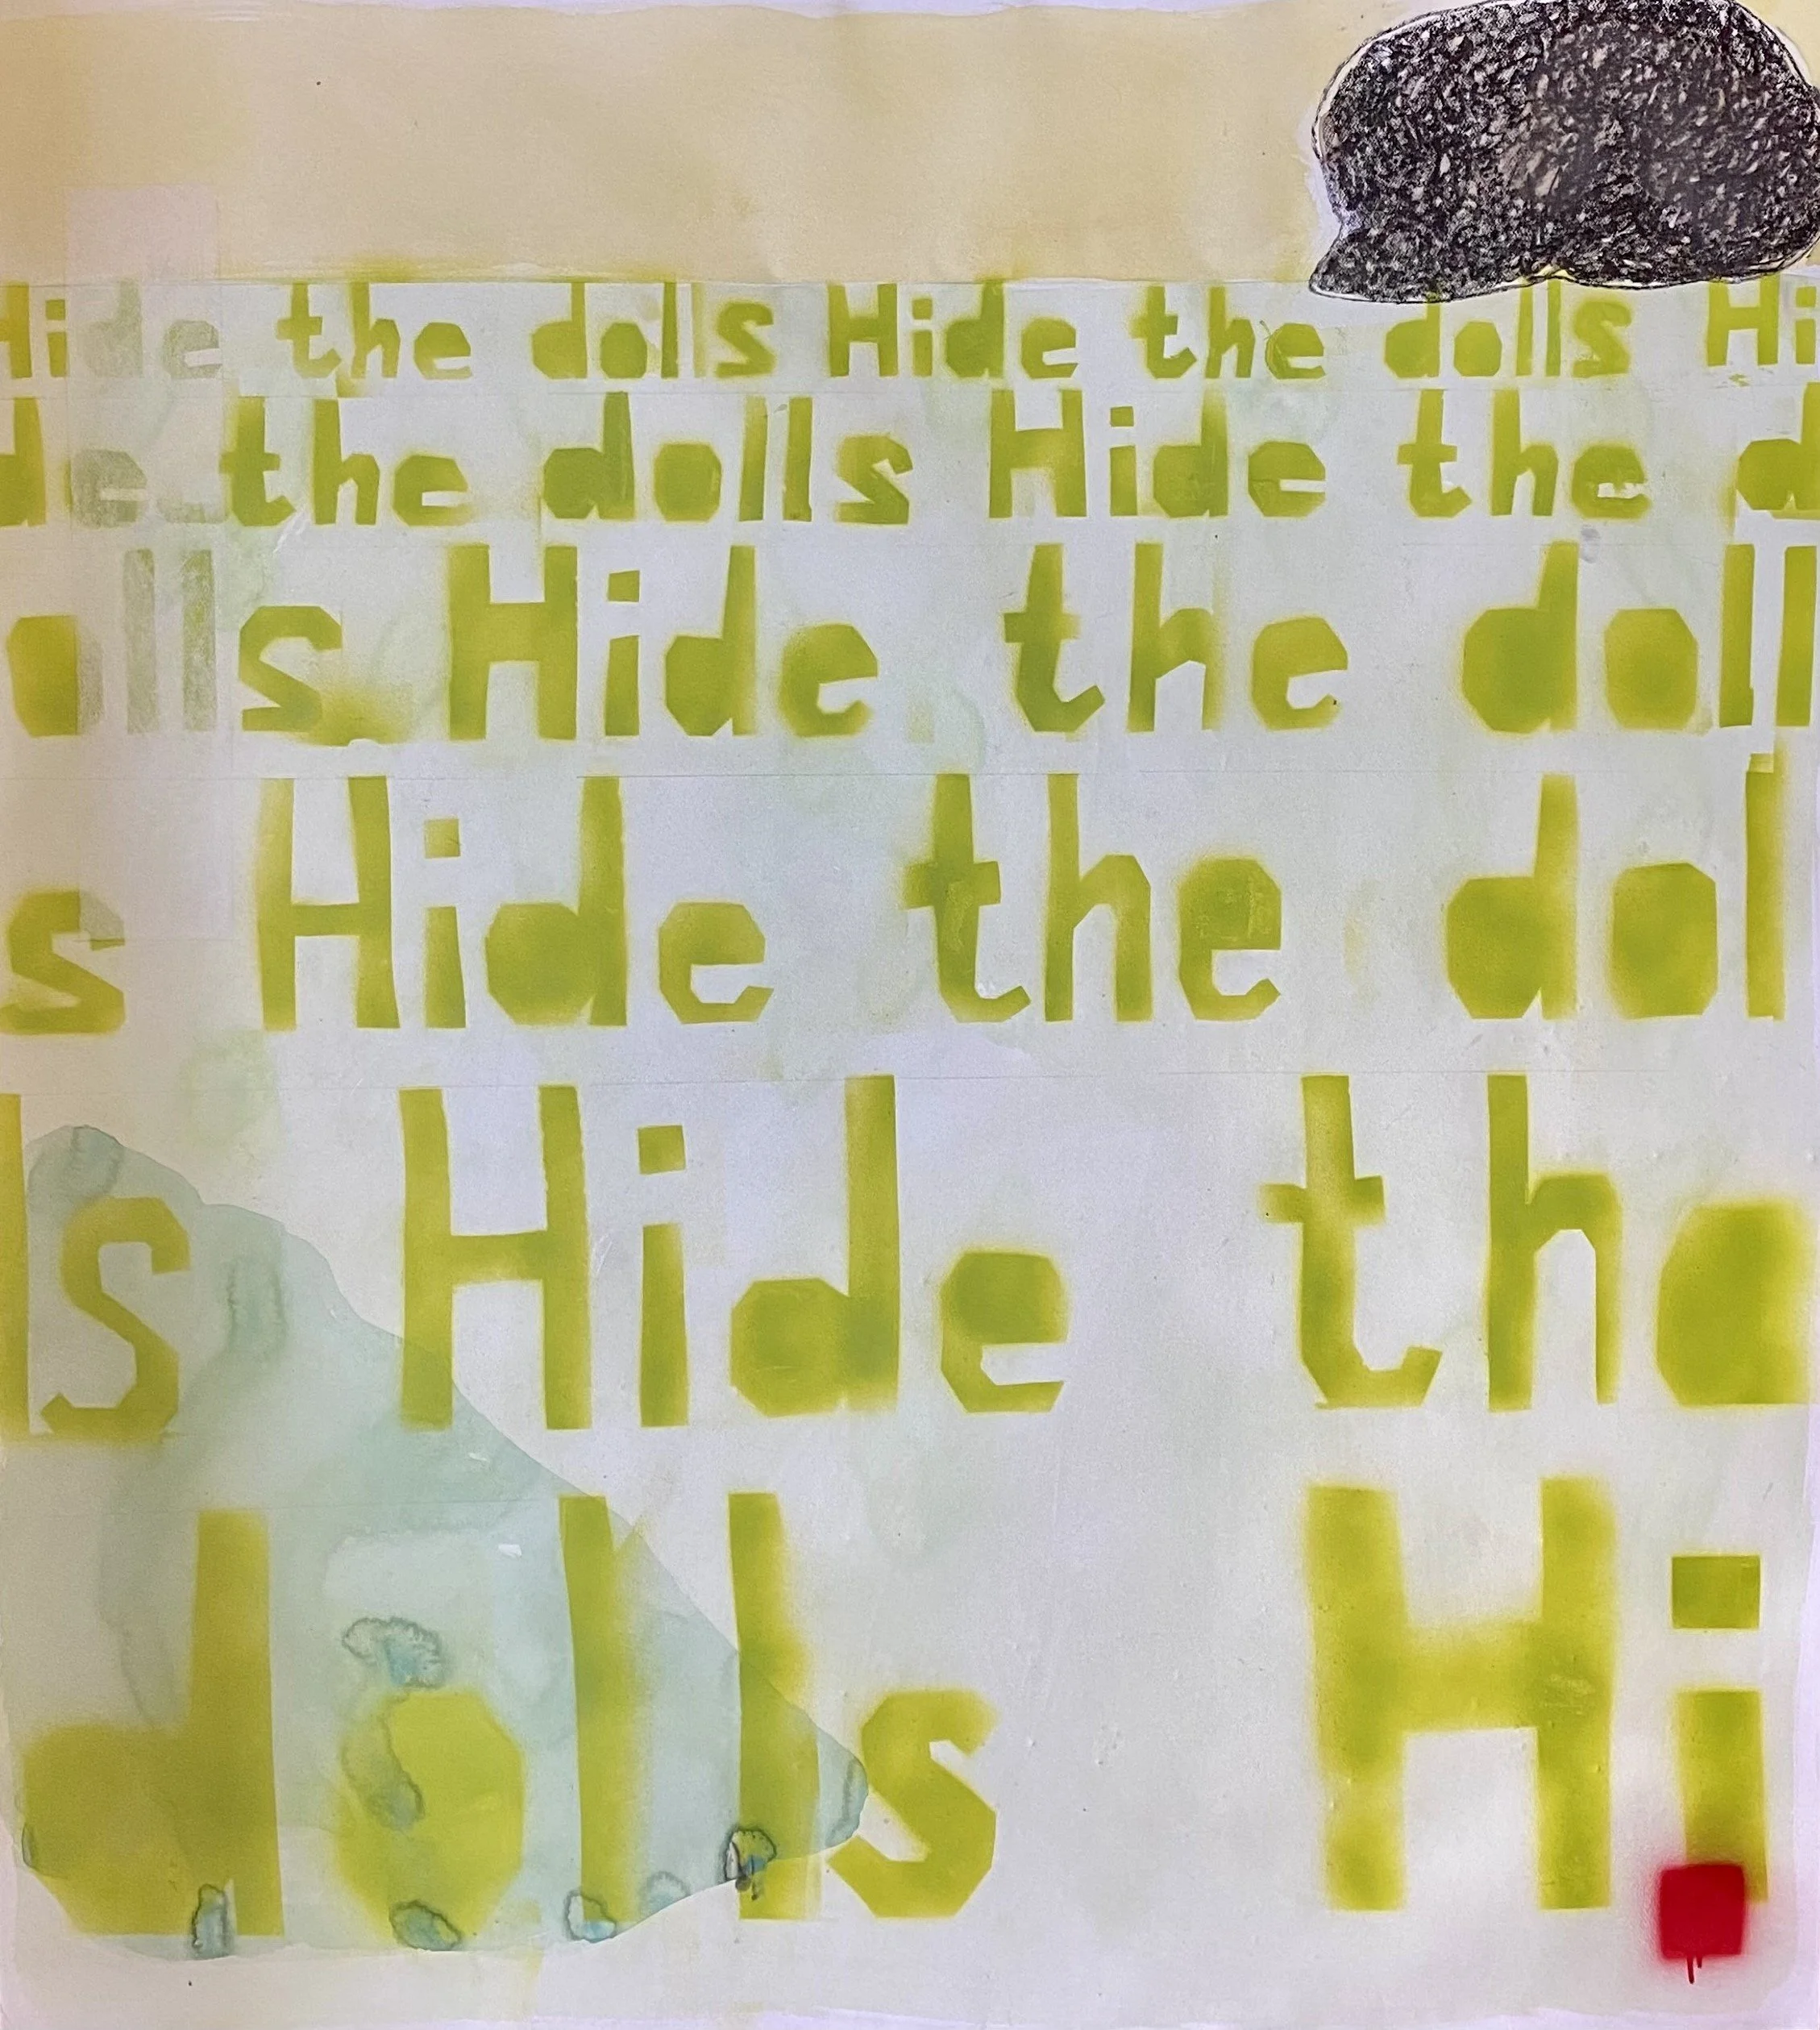 Hide the dolls Hide the dolls Hi
de the dolls Hide the d
olls Hide the doll
s Hide the dol
ls Hide the
dolls Hi